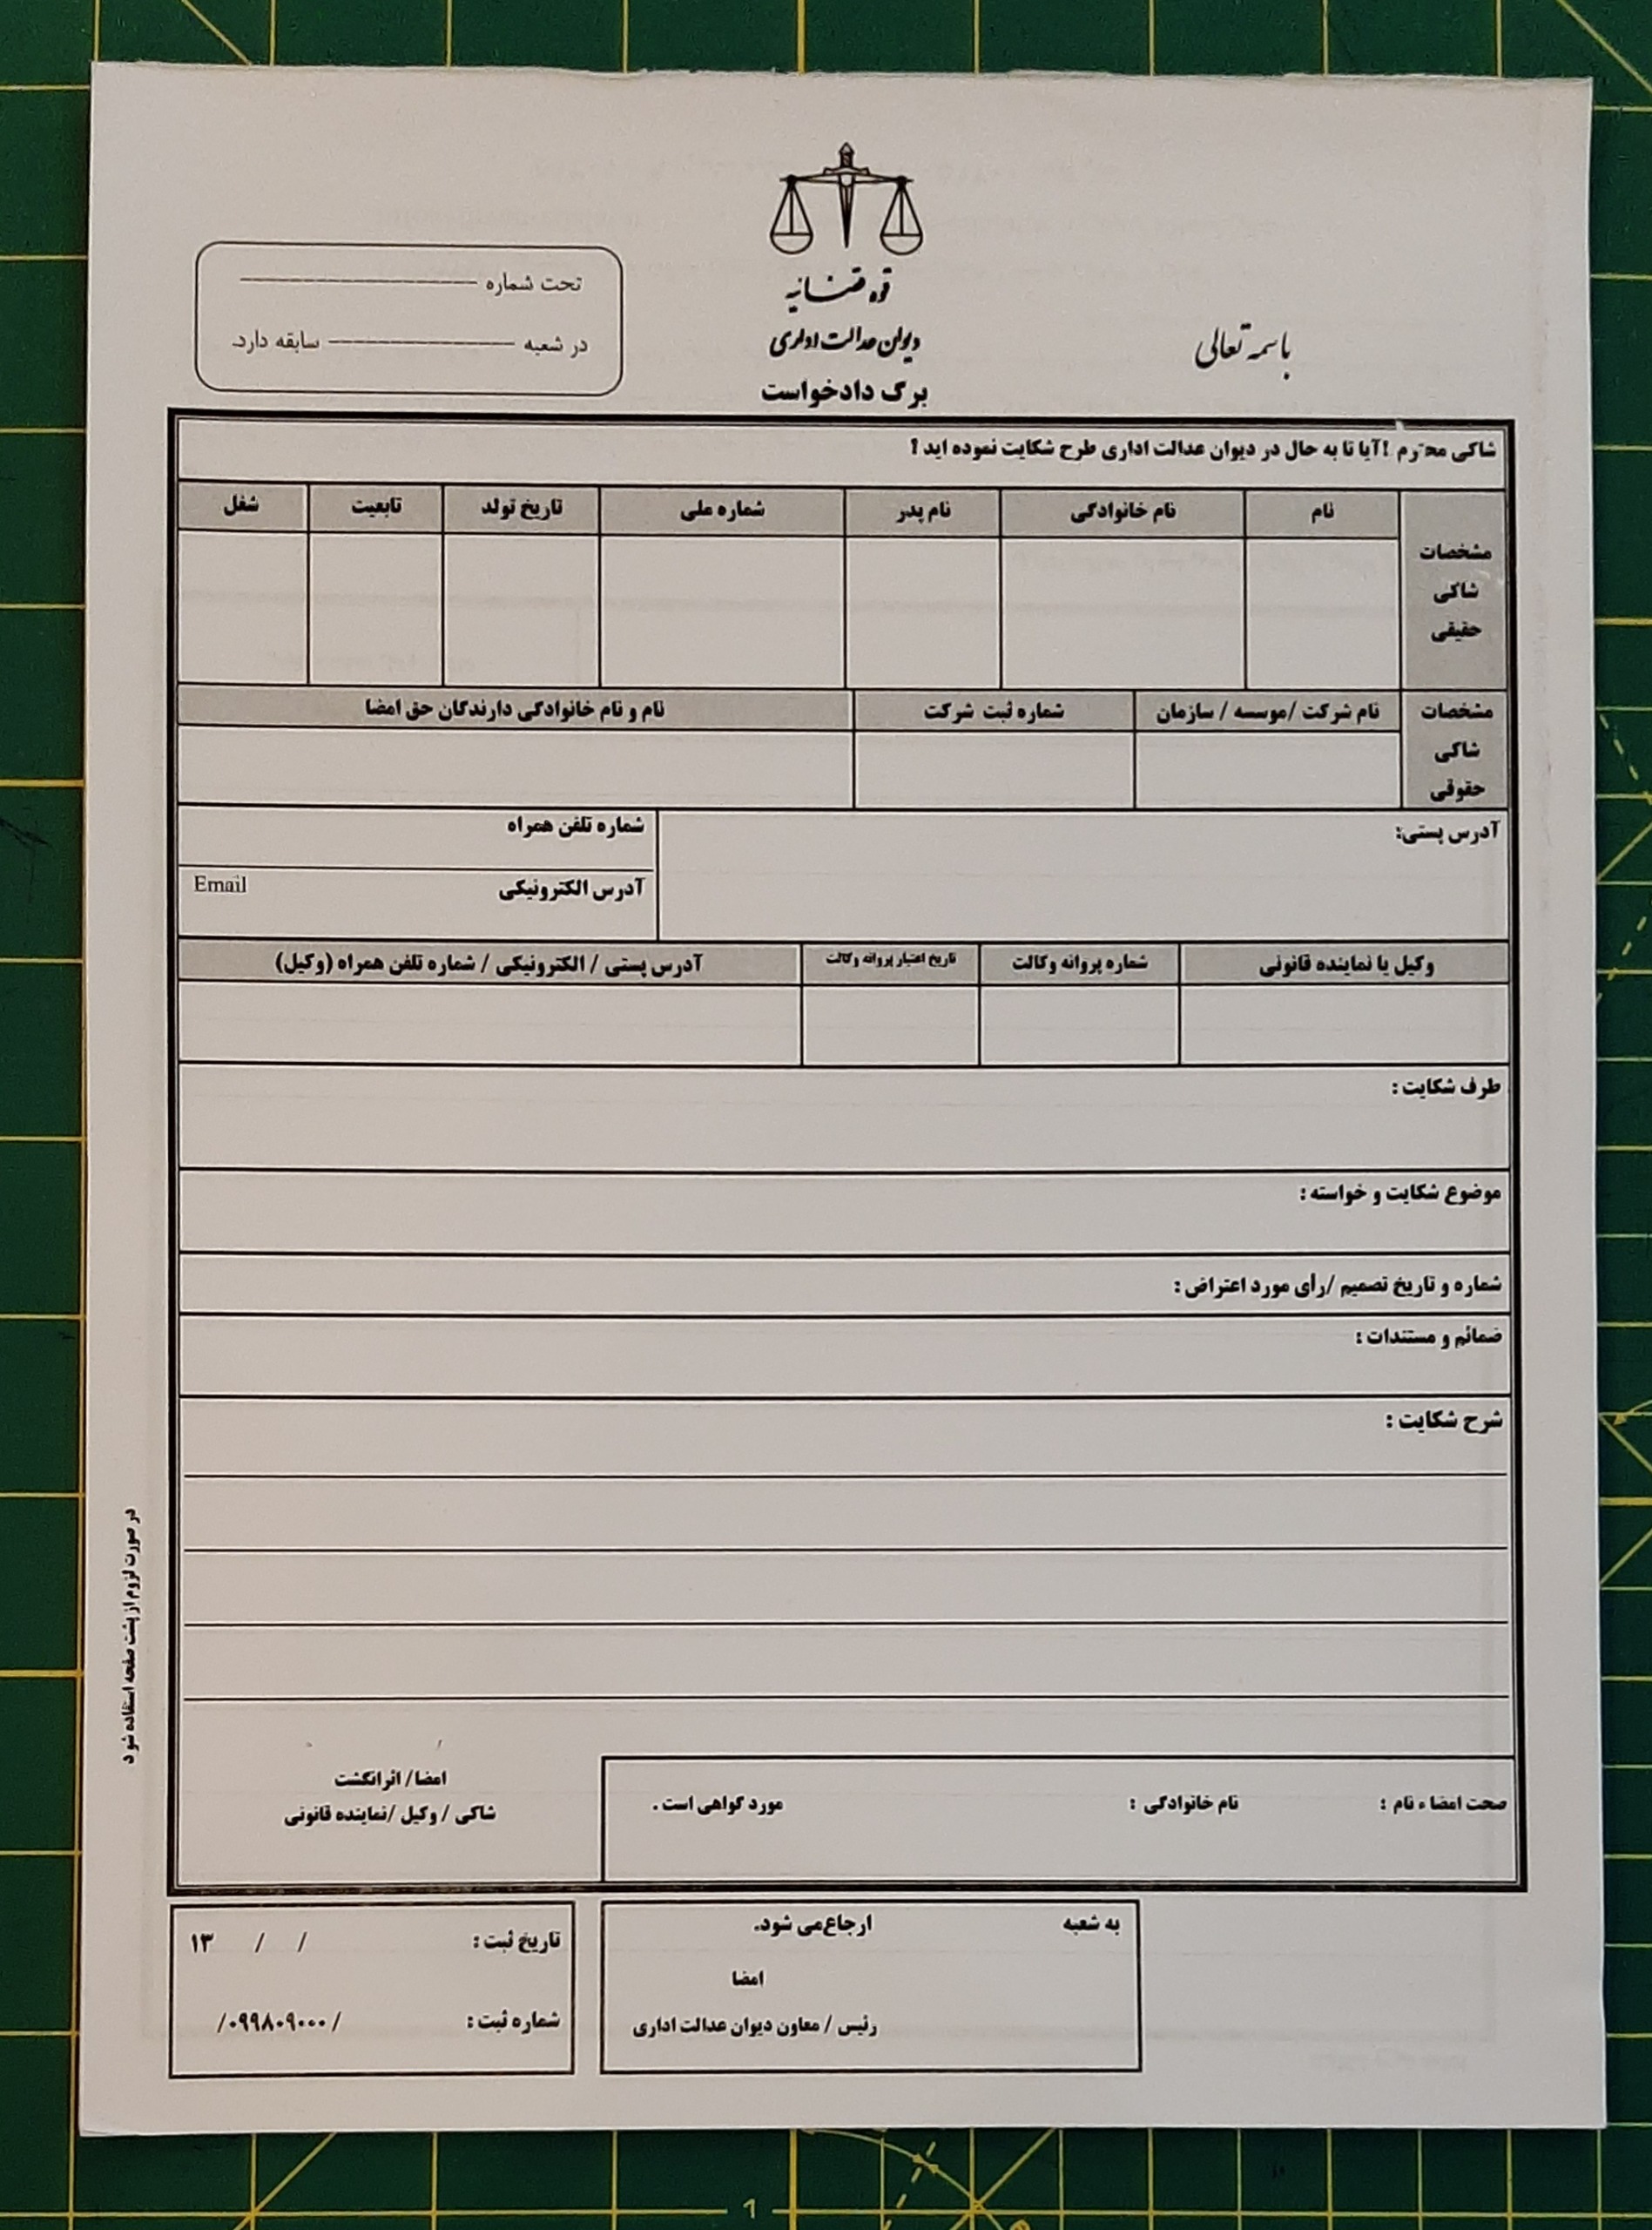 باسمه تعالی
قوه قضائیه
دیوان عدالت اداری
برگ دادخواست
تحت شماره
در شعبه سابقه دارد.
شاکی محترم !آیا تا به حال در دیوان عدالت اداری طرح شکایت نموده اید ؟
مشخصات شاکی حقیقی
نام نام خانوادگی نام پدر شماره ملی تاریخ تولد تابعیت شغل
مشخصات شاکی حقوقی
نام شرکت /موسسه / سازمان شماره ثبت شرکت نام و نام خانوادگی دارندگان حق امضا
آدرس پستی:
شماره تلفن همراه
آدرس الکترونیکی Email
وکیل یا نماینده قانونی شماره پروانه وکالت تاریخ اعتبار پروانه وکالت آدرس پستی / الکترونیکی / شماره تلفن همراه (وکیل)
طرف شکایت :
موضوع شکایت و خواسته :
شماره و تاریخ تصمیم /رأی مورد اعتراض :
ضمائم و مستندات :
شرح شکایت :
در صورت لزوم از پشت صفحه استفاده شود
صحت امضاء نام : نام خانوادگی : مورد گواهی است .
امضا/ اثرانگشت
شاکی / وکیل /نماینده قانونی
به شعبه ارجاع‌می شود.
امضا
رئیس / معاون دیوان عدالت اداری
تاریخ ثبت : / / ۱۳
شماره ثبت : /۰۹۹۸۰۹۰۰۰/
1